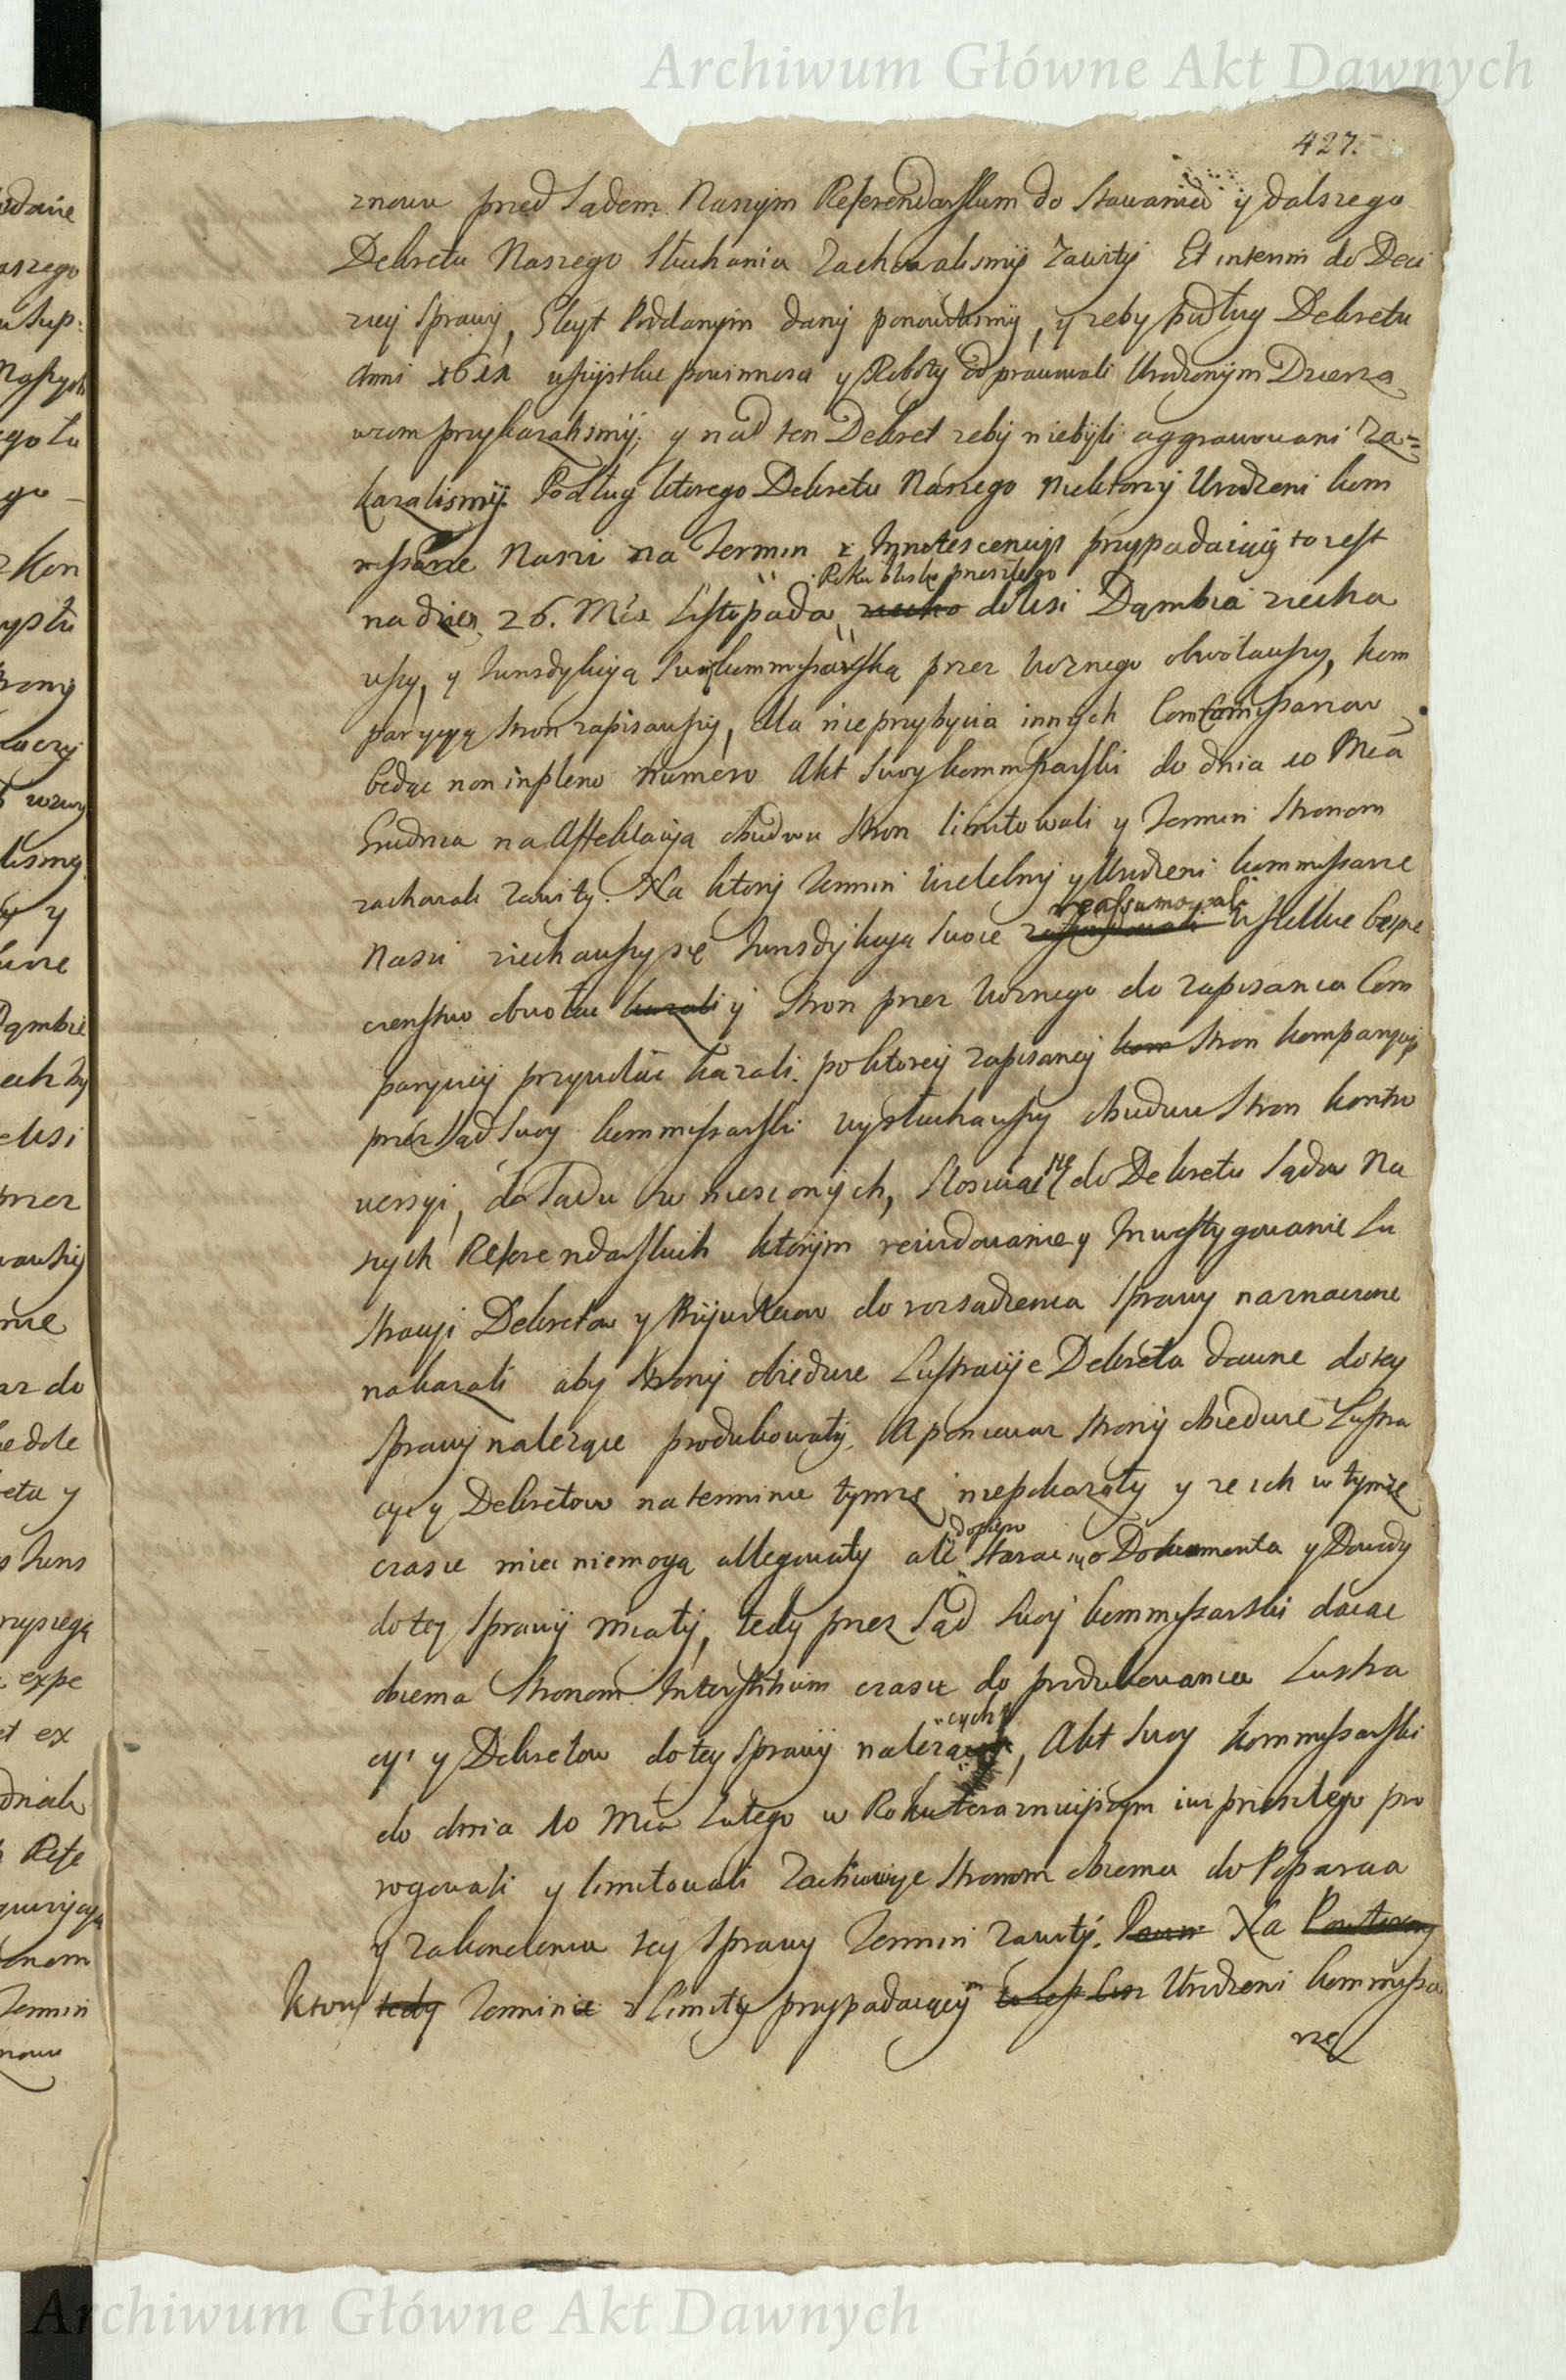 Archiwum Główne Akt Dawnych
427.
znowu przed Sądem Naszym Referendarskim do Stawania y dalszego
Dekretu Naszego Słuchania Zachowalismy Zawity Et interim do Deci
zyej Sprawy, Gleyt Poddanym dany ponowilismy, y zeby podług Dekretu
Anni wszystkie powinnosci y Roboty odprawowali Urodzonym Dzierza
wcom przykazalismy, y nad ten Dekret zeby niebyli aggrawowani Za=
kazalismy. Podług ktorego Dekretu Naszego niektorzy Urodzeni kom
missarze Nasi na Termin z Innotescencyi przypadaiący to iest
Roku blisko przeszłego
na dzien 26. Mca Listopada do Wsi Dąmbia ziecha
wszy, y Jurisdykcyą Swą kommissarską przez Woznego obwoławszy, kom
parycyą stron zapisawszy, dla nieprzybycia innych Commissarzow
będąc non in pleno numero Akt Swoy kommissarski do dnia 10 Mca
Grudnia na Affektacyą obudwu Stron limitowali y Termin Stronom
zachowali Zawity. Na ktory Termin Wielebny y Urodzeni kommissarze
reassumowali
Nasi ziechawszy się Jurisdykcyą Swoie Wszelkie bespie
czenstwo obwołać kazali y Stron przez Woznego do zapisania Com
parycyi przywołać kazali. po ktorey zapisaney kom Stron komparycyi
przez Sąd Swoy kommissarski wysłuchawszy obudwu Stron kontro
wersyi, do Sądu wniesionych, Stosuiąc się do Dekretu Sądow Na
szych Referendarskich ktorym rewidowanie y Inwestygowanie Lu
stracyi Dekretow y Przywileiow do rozsądzenia Sprawy naznaczone
nakazali aby Strony obiedwie Lustracyie Dekreta dawne do tey
Sprawy nalezące produkowały. A poniewaz Strony obiedwie Lustra
cyi y Dekretow na terminie tymze niepokazały y ze ich w tymze
dopiero
czasie miec niemogą allegowały ale Staraiąc o Dokumenta y Dowody
do tey Sprawy miały, tedy przez Sąd Swoy kommissarski daiąc
obiema Stronom Interstitium czasu do produkowania Lustra
cych
cyi y Dekretow do tey Sprawy nalezą, Akt Swoy kommissarski
do dnia 10 Mca Lutego w Roku teraznieyszym iuz przeszłego pro
rogowali y limitowali Zachowuje Stronom obiema do Poparcia
y Zakonczenia tey Sprawy Termin Zawity. Na
ktory tedy Terminie z Limity przypadaiący to iest Urodzeni kommissa
rze
Archiwum Główne Akt Dawnych